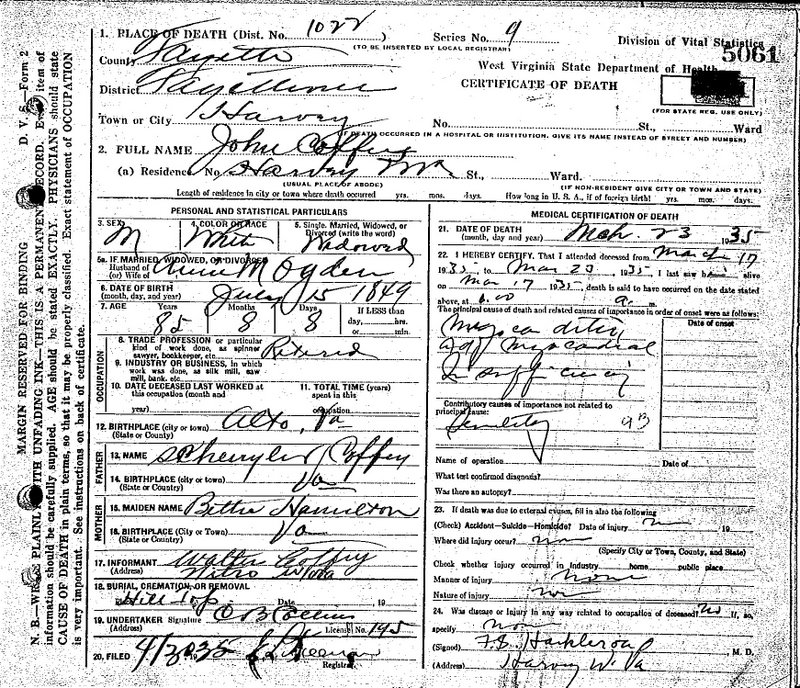 MARGIN RESERVED FOR BINDING D. V. S.—Form 2
N. B.—WRITE PLAINLY WITH UNFADING INK—THIS IS A PERMANENT RECORD. Every item of
information should be carefully supplied. AGE should be stated EXACTLY. PHYSICIANS should state
CAUSE OF DEATH in plain terms, so that it may be properly classified. Exact statement of OCCUPATION
is very important. See instructions on back of certificate.
1. PLACE OF DEATH (Dist. No. 1022 ) Series No. 9 Division of Vital Statistics
(TO BE INSERTED BY LOCAL REGISTRAR) 5061
County Fayette West Virginia State Department of Health
District Fayetteville CERTIFICATE OF DEATH
(FOR STATE REG. USE ONLY)
Town or City Harvey No. St., Ward
(IF DEATH OCCURRED IN A HOSPITAL OR INSTITUTION, GIVE ITS NAME INSTEAD OF STREET AND NUMBER)
2. FULL NAME John Coffey
(a) Residence. No. Harvey W Va. St., Ward.
(USUAL PLACE OF ABODE) (IF NON-RESIDENT GIVE CITY OR TOWN AND STATE)
Length of residence in city or town where death occurred yrs. mos. days. How long in U. S. A., if of foreign birth? yrs. mos. days.
PERSONAL AND STATISTICAL PARTICULARS
3. SEX M
4. COLOR OR RACE White
5. Single, Married, Widowed, or
Divorced (write the word)
Widowed
5a. IF MARRIED, WIDOWED, OR DIVORCED
Husband of
(or) Wife of Annie M Ogden
6. DATE OF BIRTH
(month, day, and year) July 15 1849
7. AGE Years Months Days If LESS than
85 8 8 1 day, hrs.
or min.
OCCUPATION
8. TRADE, PROFESSION or particular
kind of work done, as spinner
sawyer, bookkeeper, etc. Retired
9. INDUSTRY OR BUSINESS, in which
work was done, as silk mill, saw
mill, bank, etc.
10. DATE DECEASED LAST WORKED at
this occupation (month and
year)
11. TOTAL TIME (years)
spent in this
occupation
12. BIRTHPLACE (city or town) Alto, Va
(State or County)
FATHER
13. NAME Scheryler Coffey
14. BIRTHPLACE (City or town) Va
(State or County)
MOTHER
15. MAIDEN NAME Bettie Hamilton
16. BIRTHPLACE (City or Town) Va
(State or County)
17. INFORMANT Walter Coffey
(Address) Nitro W Va
18. BURIAL, CREMATION, OR REMOVAL
Hill Top Date 19
19. UNDERTAKER Signature O B Collins
License No. 195
20. FILED 4/3 1935
Registrar.
MEDICAL CERTIFICATION OF DEATH
21. DATE OF DEATH
(month, day and year) Mch. 23 1935
22. I HEREBY CERTIFY, That I attended deceased from March 17
1935, to Mar 23, 1935. I last saw him alive
on Mar 17 1935, death is said to have occurred on the date stated
above, at 6.00 a. m.
The principal cause of death and related causes of importance in order of onset were as follows:
Date of onset
Myocarditis
and myocardial
Insufficiency
Contributory causes of importance not related to
principal cause:
Senility
Name of operation Date of
What test confirmed diagnosis?
Was there an autopsy?
23. If death was due to external causes, fill in also the following
(Check) Accident—Suicide—Homicide? Date of injury no 19
Where did injury occur? no
(Specify City or Town, County, and State)
Check whether injury occurred in industry home public place
Manner of injury none
Nature of injury no
24. Was disease or injury in any way related to occupation of deceased? No If, so,
specify non
(Signed) M. D.
(Address) Harvey W. Va